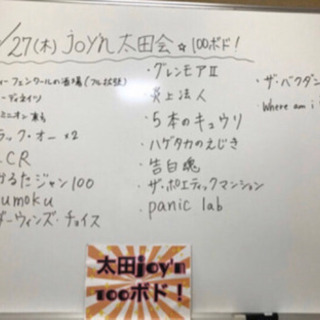 /27(木) joy'n 太田会☆100ボド!
ィーフェンタールの酒場(フル拡張)
ーディネイツ
ミニオン
ラック・オー×2
LCR
けるたジャン100
umoku
ダーウィンズ・チョイス
・グレンモアⅡ
・炎上法人
・5本のキュウリ
・ハゲタカのえじき
・告白魂
・ザ・ポエティックマンション
・panic lab
・ザ・バクダン
・Where am i
太田joy'n
100ボド!